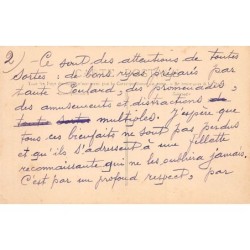 2) - Ce sont des attentions de toutes
sortes : de bons repas préparés par
tante Coulard, des promenades,
des amusements et distractions de
toute sortes multiples. J'espère que
tous ces bienfaits ne sont pas perdus
et qu'ils s'adressent à une fillette
reconnaissante qui ne les oubliera jamais.
C'est par un profond respect, par